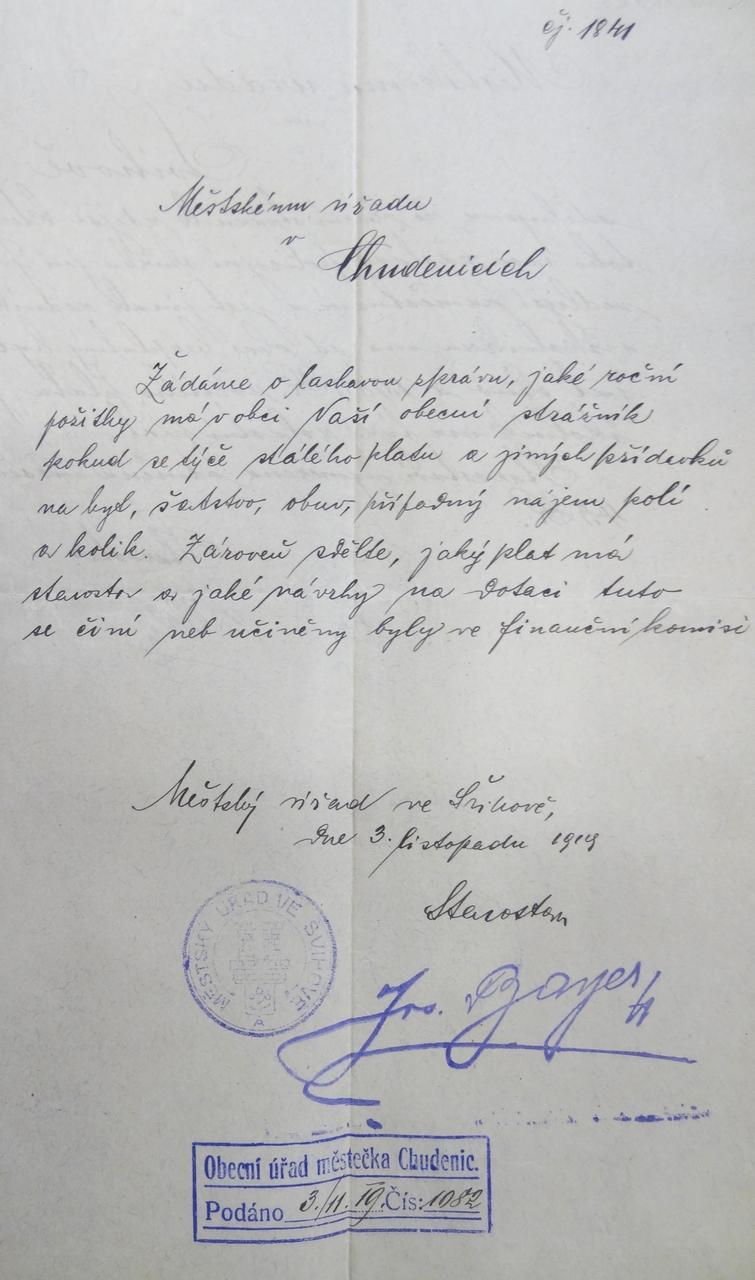 čj. 1841
Městskému úřadu
v
Chudenicích
Žádáme o laskavou zprávu, jaké roční
požitky má v obci Vaší obecní strážník
pokud se týče stálého platu a jiných přídavků
na byt, šatstvo, obuv, případný nájem polí
a kolik. Zároveň sdělte, jaký plat má
starosta a jaké návrhy na dotaci tuto
se činí neb učiněny byly ve finanční komisi
Městský úřad ve Švihově,
dne 3. listopadu 1919
Starosta
MĚSTSKÝ ÚŘAD VE ŠVIHOVĚ
Jos. Bayer
Obecní úřad městečka Chudenic.
Podáno 3./11. 19. Čís: 1082